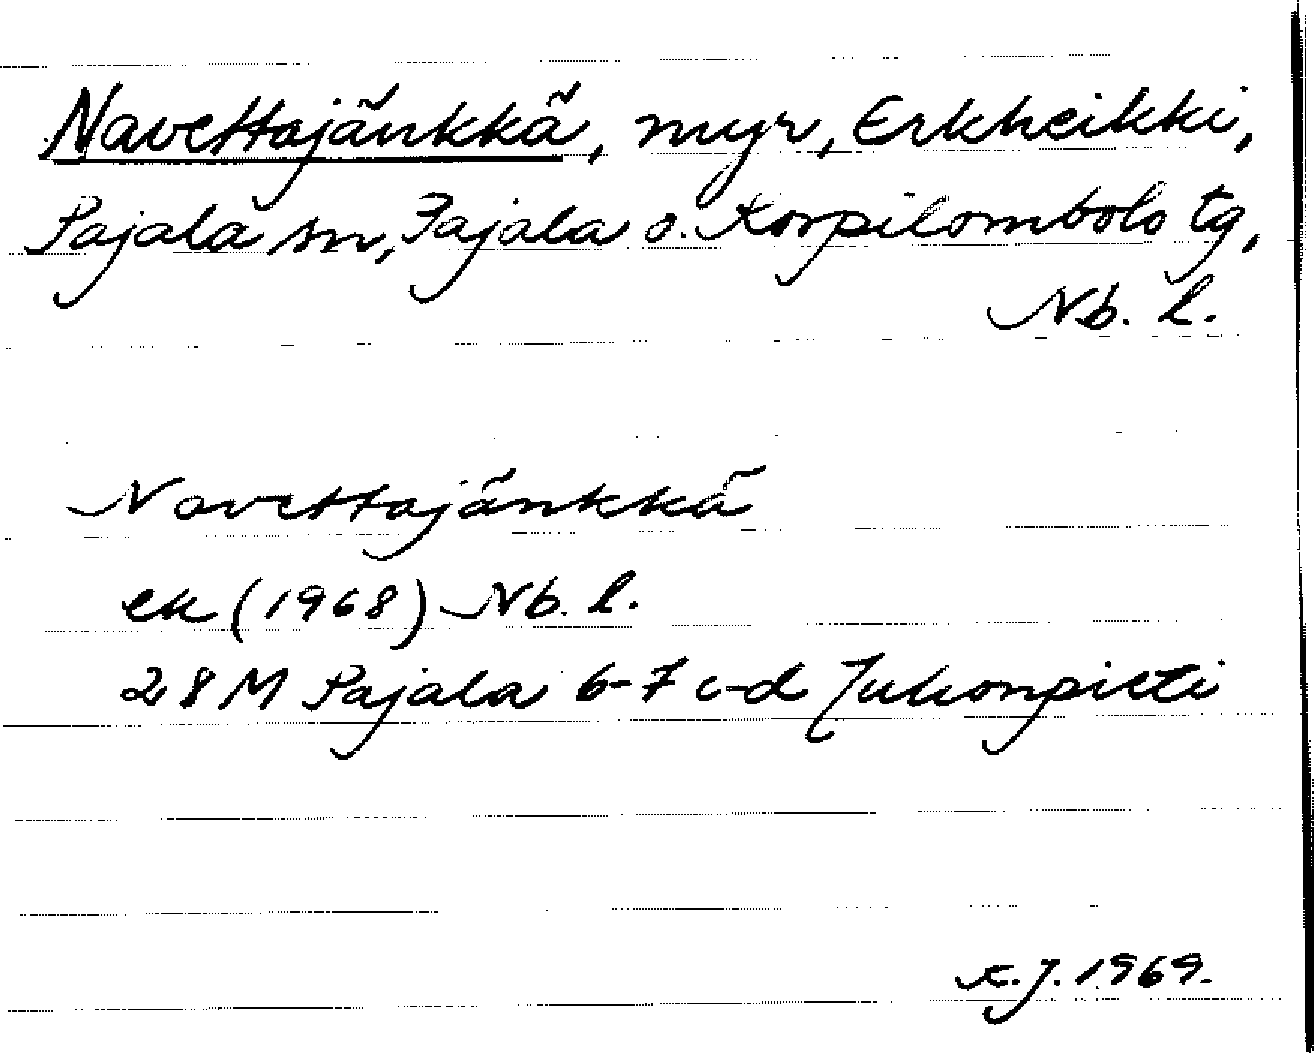 Navettajänkkä, myr, Erkheikki,
Pajala sn, Pajala o. Korpilombolo tg,
Nb. l.
Navettajänkkä
ek (1968) Nb. l.
28 M Pajala 6-7 c-d Juhonpieti
K.J. 1969.